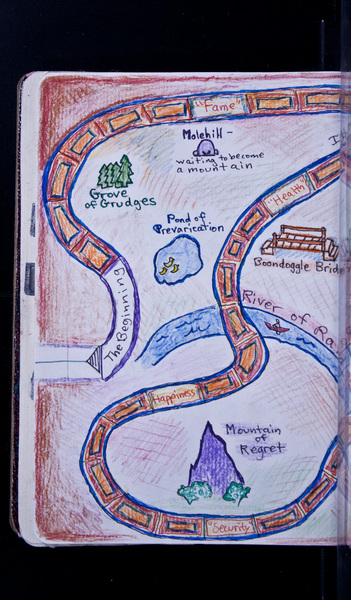 "Fame"
Molehill -
waiting to become
a mountain
"Health"
Grove
of Grudges
Pond of
Prevarication
Boondoggle
The Beginning
River of
Happiness
Mountain
of
Regret
"Security"